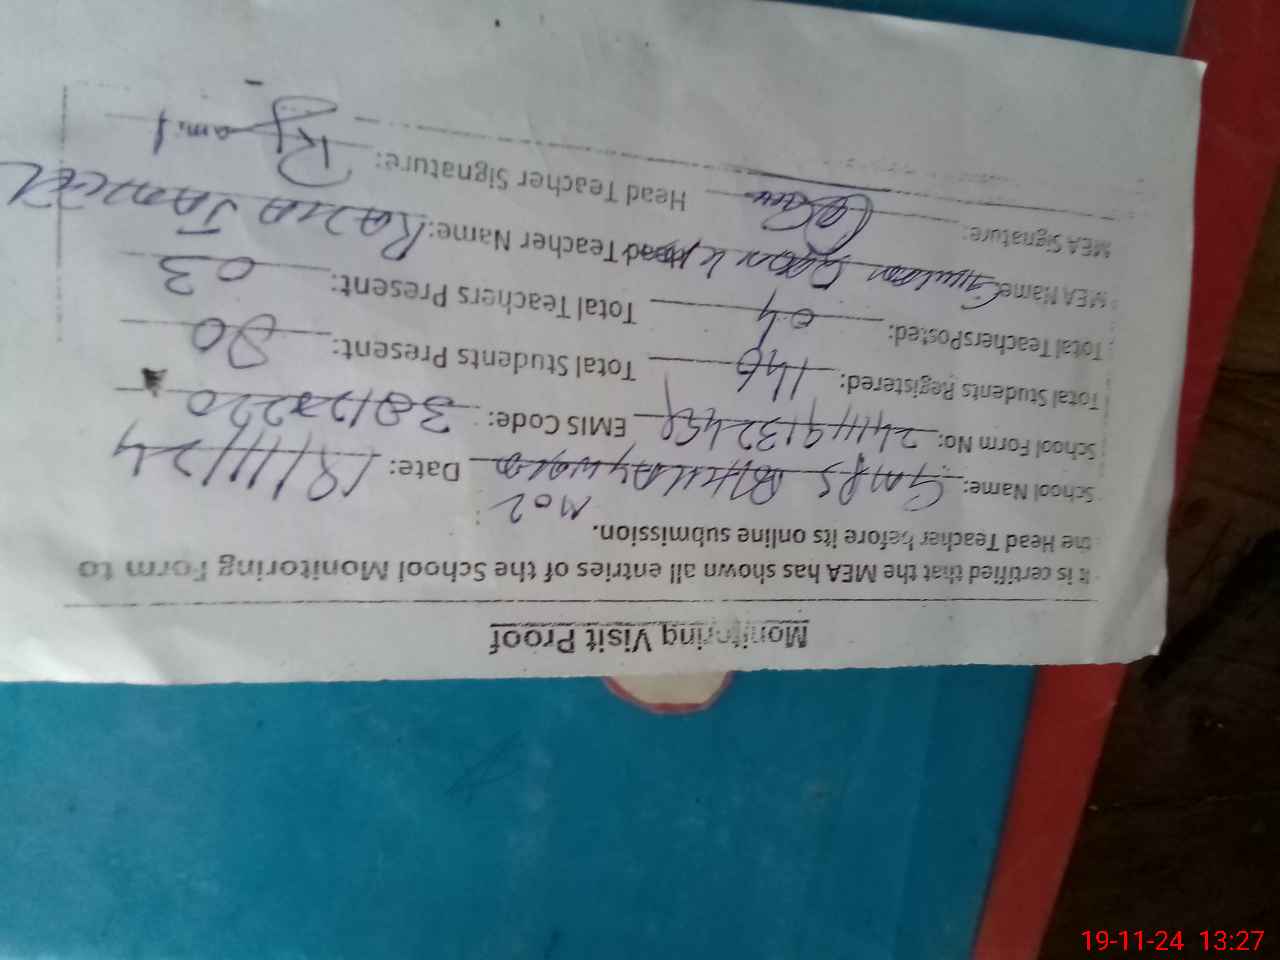 Monitoring Visit Proof
It is certified that the MEA has shown all entries of the School Monitoring Form to
the Head Teacher before its online submission.
No 2
School Name: GMPS Date: 19/11/24
School Form No: EMIS Code:
Total Students Registered: 146 Total Students Present: 80
Total Teachers Posted: 04 Total Teachers Present: 03
MEA Name: Head Teacher Name: Razia Jameel
MEA Signature: Head Teacher Signature:
19-11-24 13:27